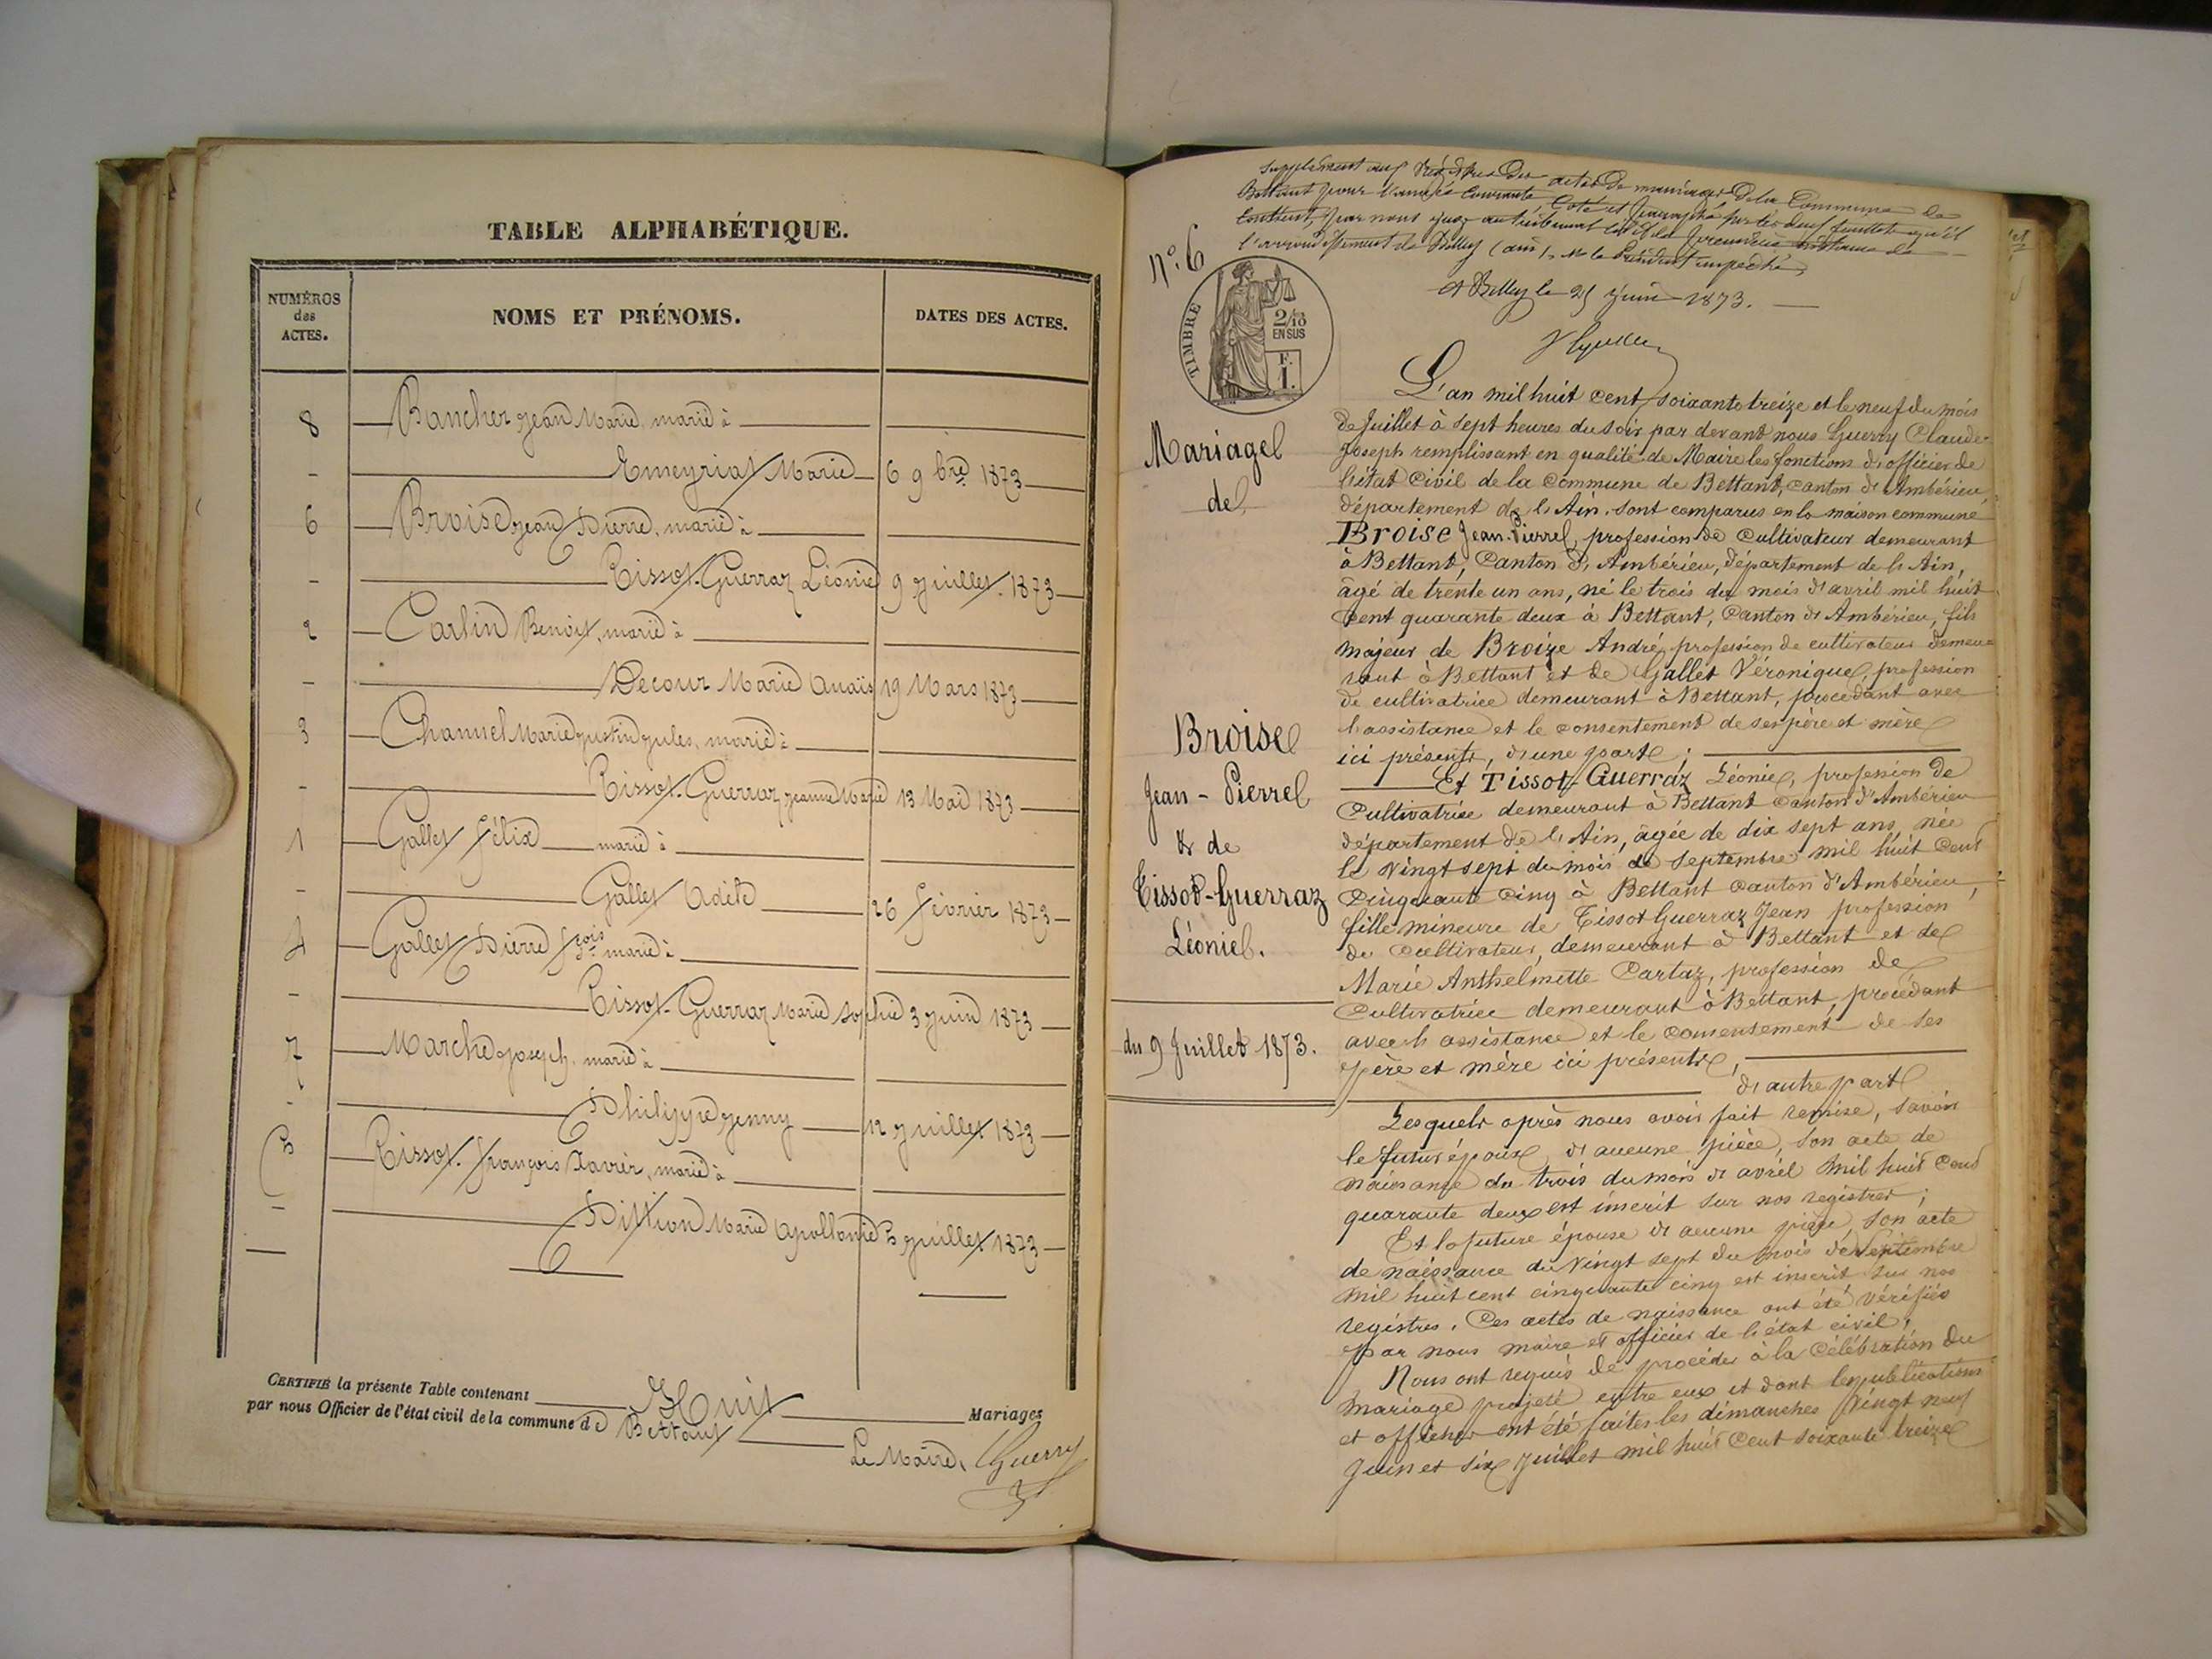 TABLE ALPHABÉTIQUE.
NUMÉROS des ACTES.
NOMS ET PRÉNOMS.
DATES DES ACTES.
8 Bancher Jean Marie, marié à
- Emeyriat Marie 6 9bre 1873
6 Broise Jean Pierre, marié à
- Tissot-Guerraz Léonie 9 Juillet 1873
2 Carlin Benoit, marié à
- Decour Marie Anaïs 19 Mars 1873
3 Channel Marie Justin Jules, marié à
- Tissot-Guerraz Jeanne Marie 13 Mai 1873
1 Gallet Félix marié à
- Gallet Adèle 26 février 1873
4 Gallet Pierre fçois marié à
- Tissot-Guerraz Marie Sophie 3 Juin 1873
7 Marche Joseph, marié à
- Philippe Jenny 12 Juillet 1873
5 Tissot François Xavier, marié à
- Pittion Marie Apollonie 5 Juillet 1873
CERTIFIÉ la présente Table contenant Huit Mariages
par nous Officier de l'état civil de la commune de Bettant
Le Maire, Guerry
Supplément aux Registres des actes de mariages de la Commune de
Bettant pour l'année courante, Coté et paraphé sur les deux feuillets qu'il
contient, par nous juge au tribunal civil de première instance de
l'arrondissement de Belley (ain), M. le Président empêché,
A Belley le 25 Juin 1873.
N°. 6
TIMBRE
2/10
EN SUS
F.
1.
Mariage
de
Broise
Jean-Pierre
& de
Tissot-Guerraz
Léonie.
du 9 Juillet 1873.
L'an mil huit cent soixante treize et le neuf du mois
de Juillet à sept heures du soir par devant nous Guerry Claude-
Joseph remplissant en qualité de Maire les fonctions d'officier de
l'état civil de la Commune de Bettant, canton d'Ambérieu,
département de l'Ain, sont comparus en la maison commune
Broise Jean-Pierre, profession de Cultivateur demeurant
à Bettant, Canton d'Ambérieu, département de l'Ain,
âgé de trente un ans, né le trois du mois d'avril mil huit
cent quarante deux à Bettant, Canton d'Ambérieu, fils
majeur de Broize André, profession de cultivateur demeu=
rant à Bettant et de Gallet Véronique, profession
de cultivatrice demeurant à Bettant, procédant avec
l'assistance et le consentement de ses père et mère
ici présents, d'une part ;
Et Tissot-Guerraz Léonie, profession de
Cultivatrice demeurant à Bettant canton d'Ambérieu
département de l'Ain, âgée de dix sept ans, née
le vingt sept du mois de Septembre mil huit cent
Cinquante cinq à Bettant canton d'Ambérieu,
fille mineure de Tissot Guerraz Jean profession
de Cultivateur, demeurant à Bettant et de
Marie Anthelmette Cartaz, profession de
Cultivatrice demeurant à Bettant, procédant
avec l'assistance et le consentement de ses
père et mère ici présents,
d'autre part
Lesquels après nous avoir fait remise, savoir
le futur époux, d'aucune pièce, son acte de
naissance du trois du mois d'avril mil huit cent
quarante deux est inscrit sur nos registres ;
Et la future épouse d'aucune pièce, son acte
de naissance du vingt sept du mois de Septembre
mil huit cent cinquante cinq est inscrit sur nos
registres. Ces actes de naissance ont été vérifiés
par nous maire et officier de l'état civil,
Nous ont requis de procéder à la célébration du
mariage projeté entre eux et dont les publications
et affiches ont été faites les dimanches vingt neuf
Juin et six Juillet mil huit Cent soixante treize